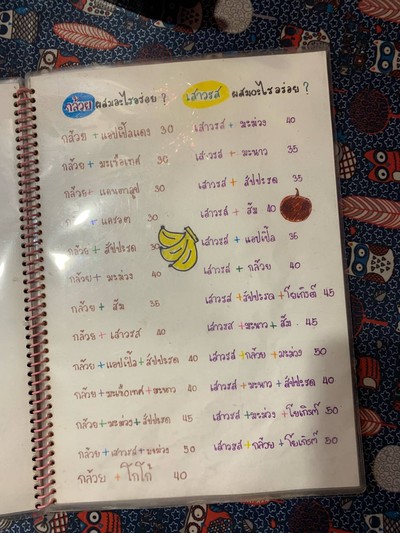 กล้วย ผสมอะไรอร่อย ?
กล้วย + แอปเปิ้ลแดง 30
กล้วย + มะเขือเทศ 30
กล้วย + แคนตาลูป 30
+ แครอต 30
กล้วย + สัปปะรด 30
กล้วย + มะม่วง 40
กล้วย + ส้ม 35
กล้วย + เสาวรส 40
กล้วย + แอปเปิ้ล + สัปปะรด 40
กล้วย + มะเขือเทศ + มะนาว 40
กล้วย + มะม่วง + สัปปะรด 45
กล้วย + เสาวรส + มะม่วง 50
กล้วย + โกโก้ 40
เสาวรส ผสมอะไรอร่อย ?
เสาวรส + มะม่วง 40
เสาวรส + มะนาว 35
เสาวรส + สัปปะรด 35
เสาวรส + ส้ม 40
เสาวรส + แอปเปิ้ล 35
เสาวรส + กล้วย 40
เสาวรส + สัปปะรด + โยเกิร์ต 45
เสาวรส + มะนาว + ส้ม . 45
เสาวรส + กล้วย + มะม่วง 50
เสาวรส + มะนาว + สัปปะรด 40
เสาวรส + มะม่วง + โยเกิร์ต 50
เสาวรส + กล้วย + โยเกิร์ต 50